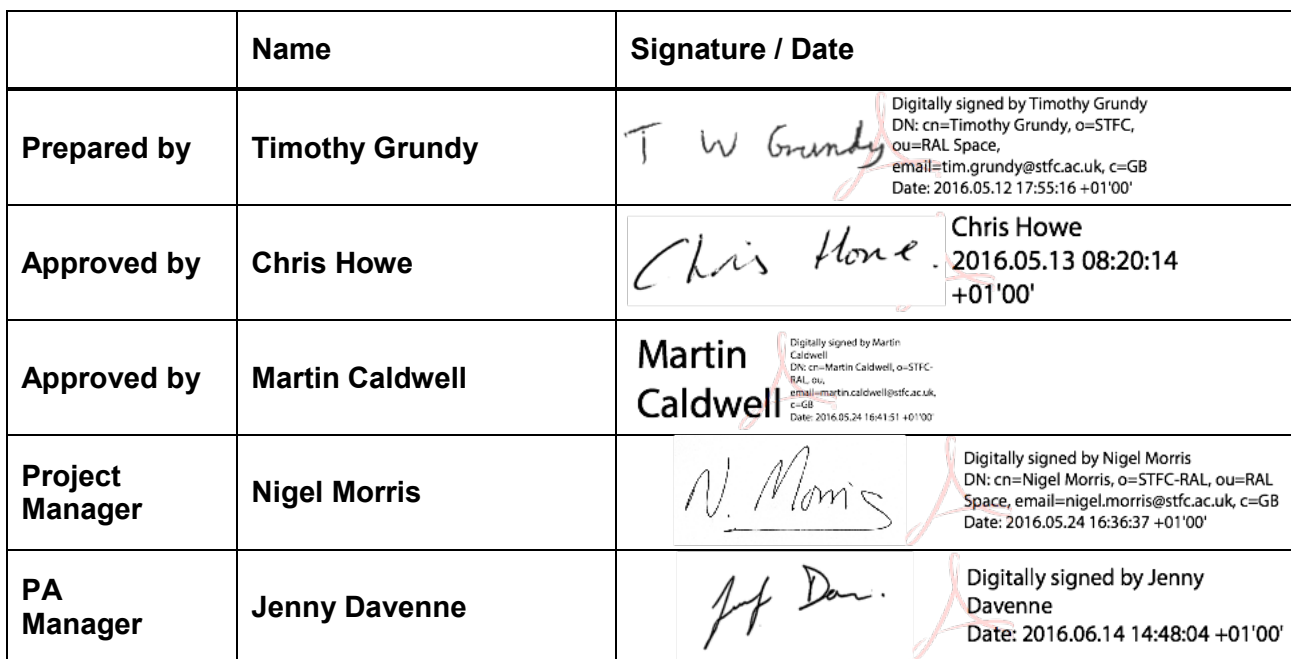 Name Signature / Date
Prepared by Timothy Grundy T W Grundy
Digitally signed by Timothy Grundy
DN: cn=Timothy Grundy, o=STFC,
ou=RAL Space,
email=tim.grundy@stfc.ac.uk, c=GB
Date: 2016.05.12 17:55:16 +01'00'
Approved by Chris Howe Chris Howe.
Chris Howe
2016.05.13 08:20:14
+01'00'
Approved by Martin Caldwell
Martin
Caldwell
Digitally signed by Martin
Caldwell
DN: cn=Martin Caldwell, o=STFC-
RAL, ou,
email=martin.caldwell@stfc.ac.uk,
c=GB
Date: 2016.05.24 16:41:51 +01'00'
Project
Manager
Nigel Morris
N. Morris
Digitally signed by Nigel Morris
DN: cn=Nigel Morris, o=STFC-RAL, ou=RAL
Space, email=nigel.morris@stfc.ac.uk, c=GB
Date: 2016.05.24 16:36:37 +01'00'
PA
Manager
Jenny Davenne
Digitally signed by Jenny
Davenne
Date: 2016.06.14 14:48:04 +01'00'